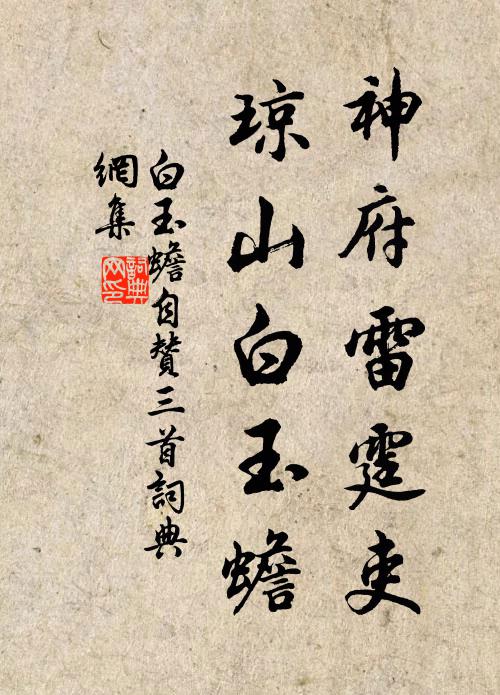 神府雷霆吏
琼山白玉蟾
白玉蟾自赞三首詞典
網集
詞典
网印